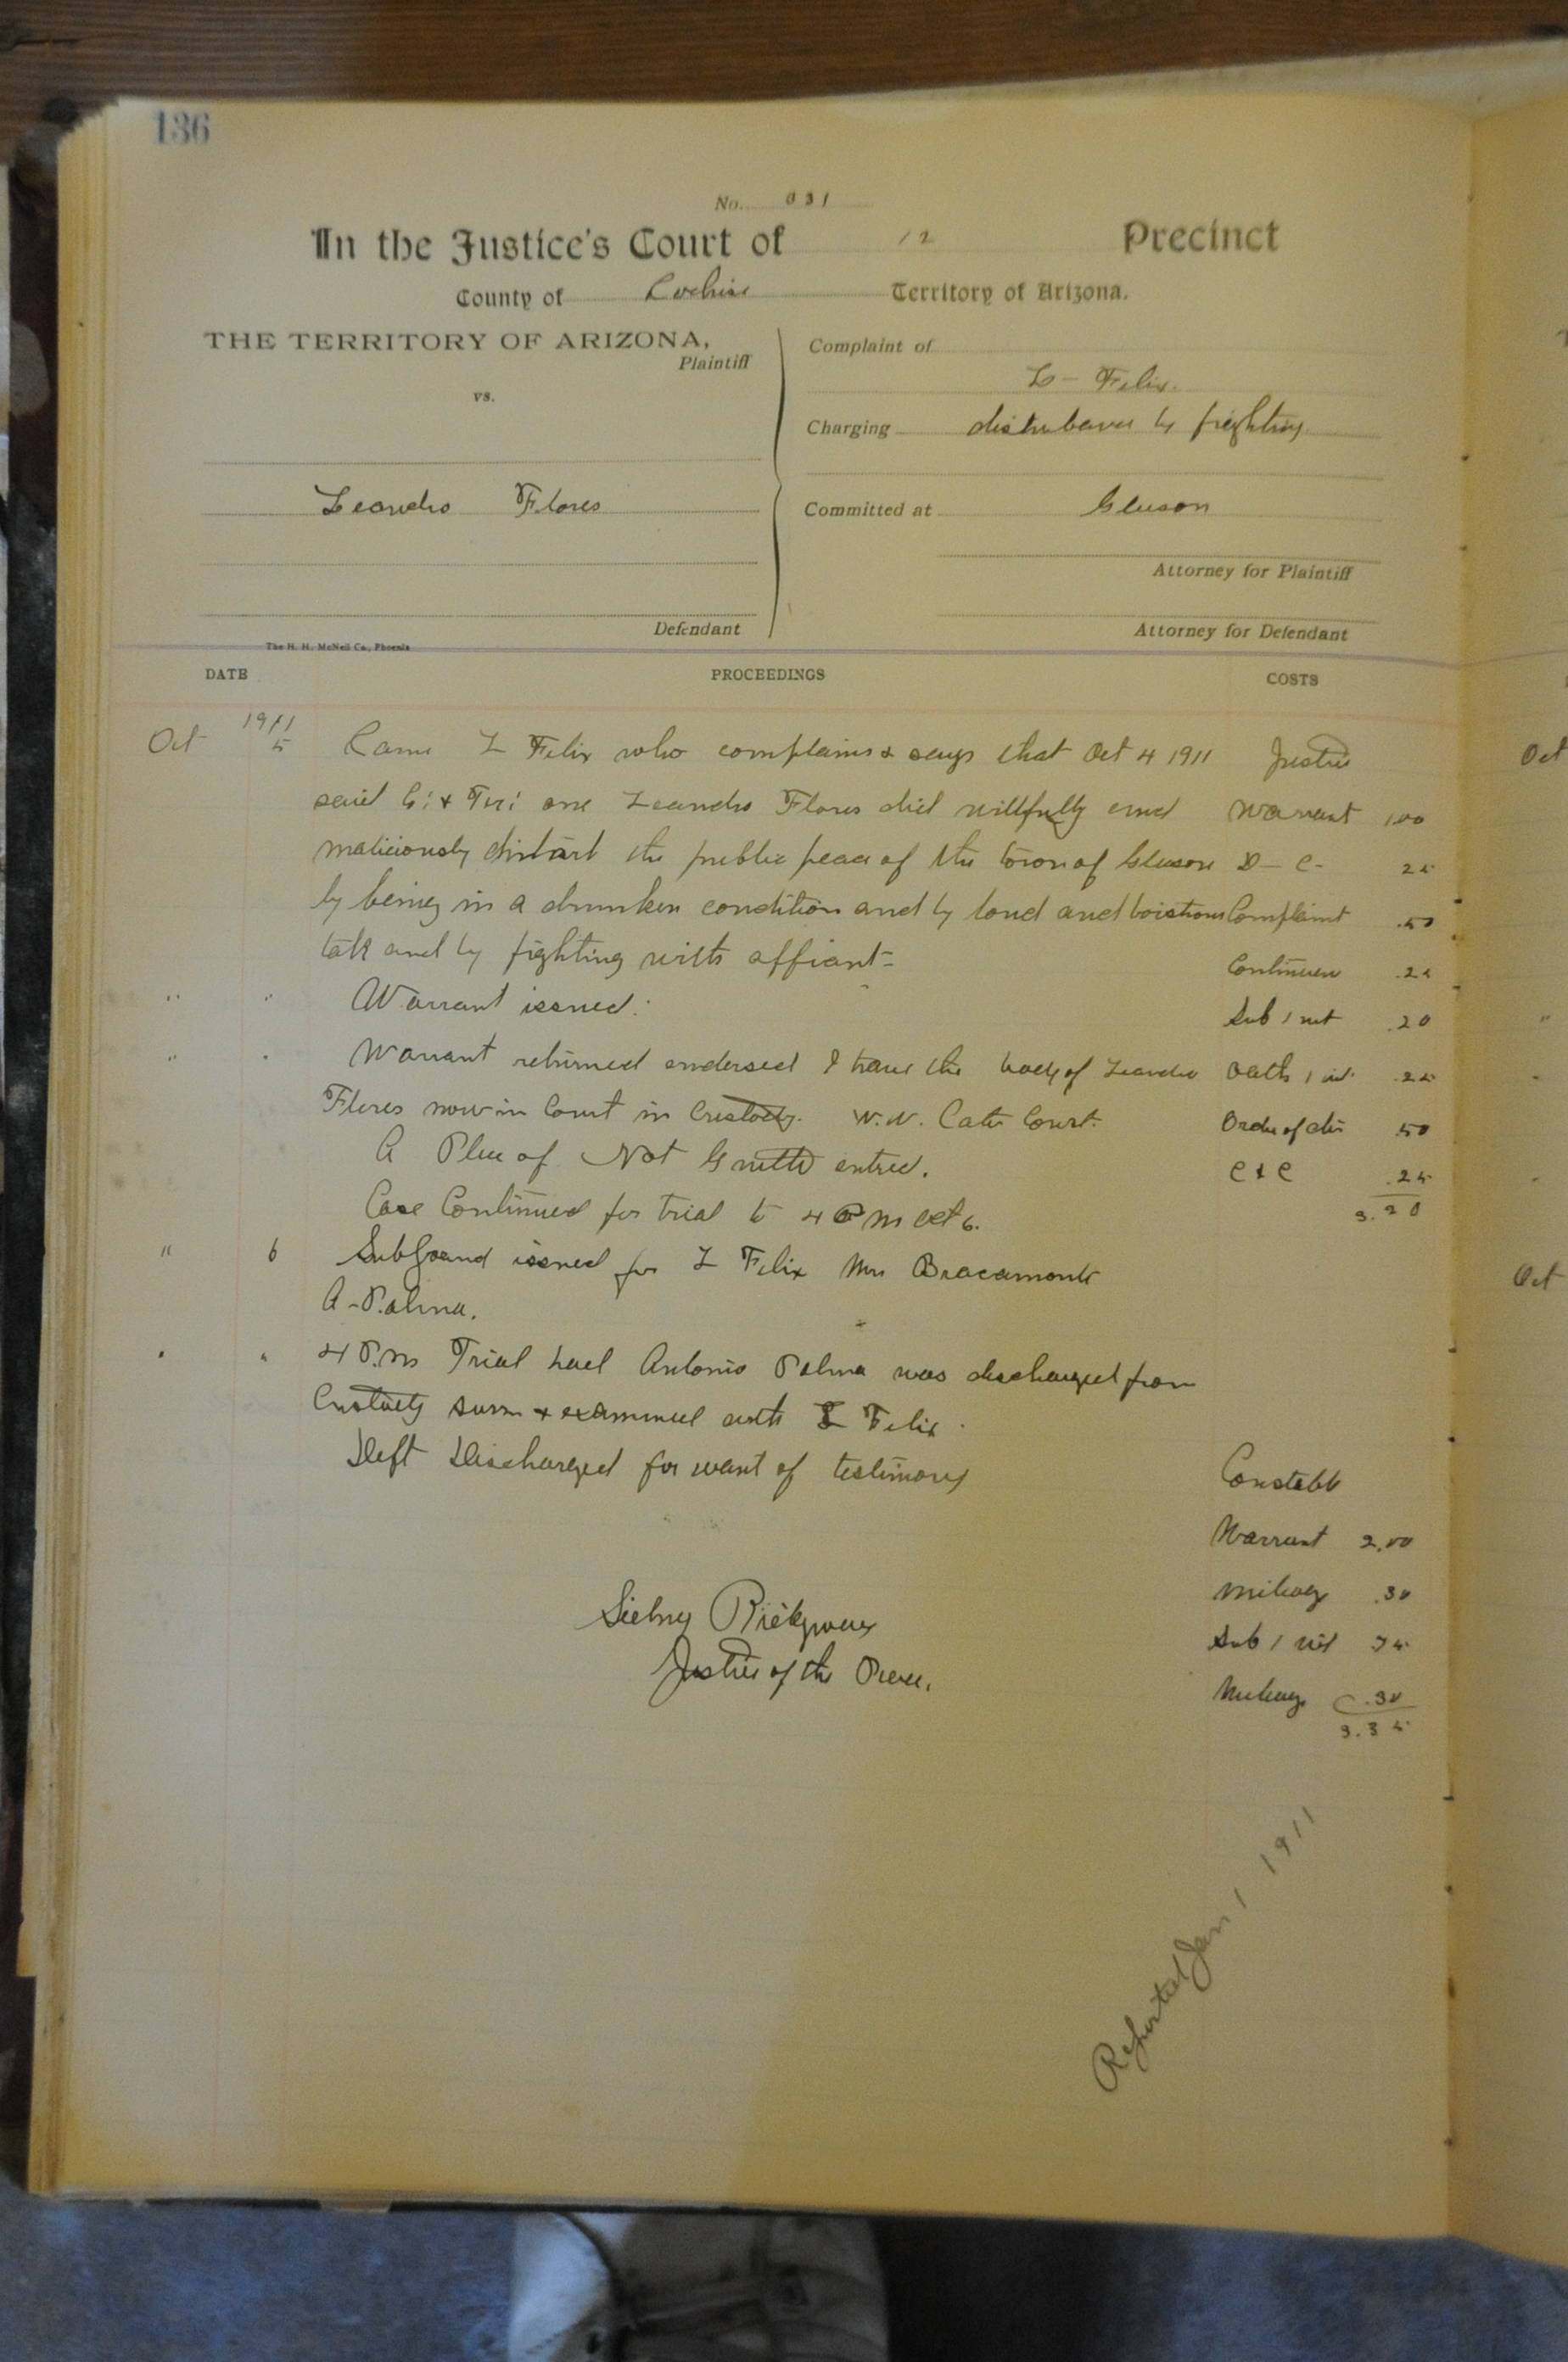 136
No. 031
In the Justice's Court of 12 Precinct
County of Cochise Territory of Arizona.
THE TERRITORY OF ARIZONA,
Plaintiff
vs.
Leandro Flores
Defendant
The H. H. McNeil Co., Phoenix
Complaint of
L - Felix.
Charging disturbance by fighting
Committed at Gleeson
Attorney for Plaintiff
Attorney for Defendant
DATE PROCEEDINGS COSTS
1911
Oct 5 Came L Felix who complains & says that Oct 4 1911 Justice
said Co & Ter one Leandro Flores did willfully and Warrant 1.00
maliciously disturb the public peace of the town of Gleeson D - C - 25
by being in a drunken condition and by loud and boistrous Complaint .50
talk and by fighting with affiant - Continuen .25
" " Warrant issued. Sub 1 wit .20
" " Warrant returned endorsed I have the body of Leandro Oath 1 wit .25
Flores now in Court in Custody. W. N. Cate Const. Order of dis .50
A Plea of Not Guilty entred. C & C .25
Case Continued for trial to 4 P m Oct 6. 3.20
" 6 Subpoena issued for L Felix Mrs Bracamonte
A - Palma.
" " 4 P.m Trial had Antonio Palma was discharged from
Custody sworn & examined with L Felix.
Deft Discharged for want of testimony
Constable
Warrant 2.00
Mileage .30
Sub 1 wit 75
Mileage .30
3.35
Sidney Ridgway
Justice of the Peace.
Reported Jan 1 1911
Oct
Oct